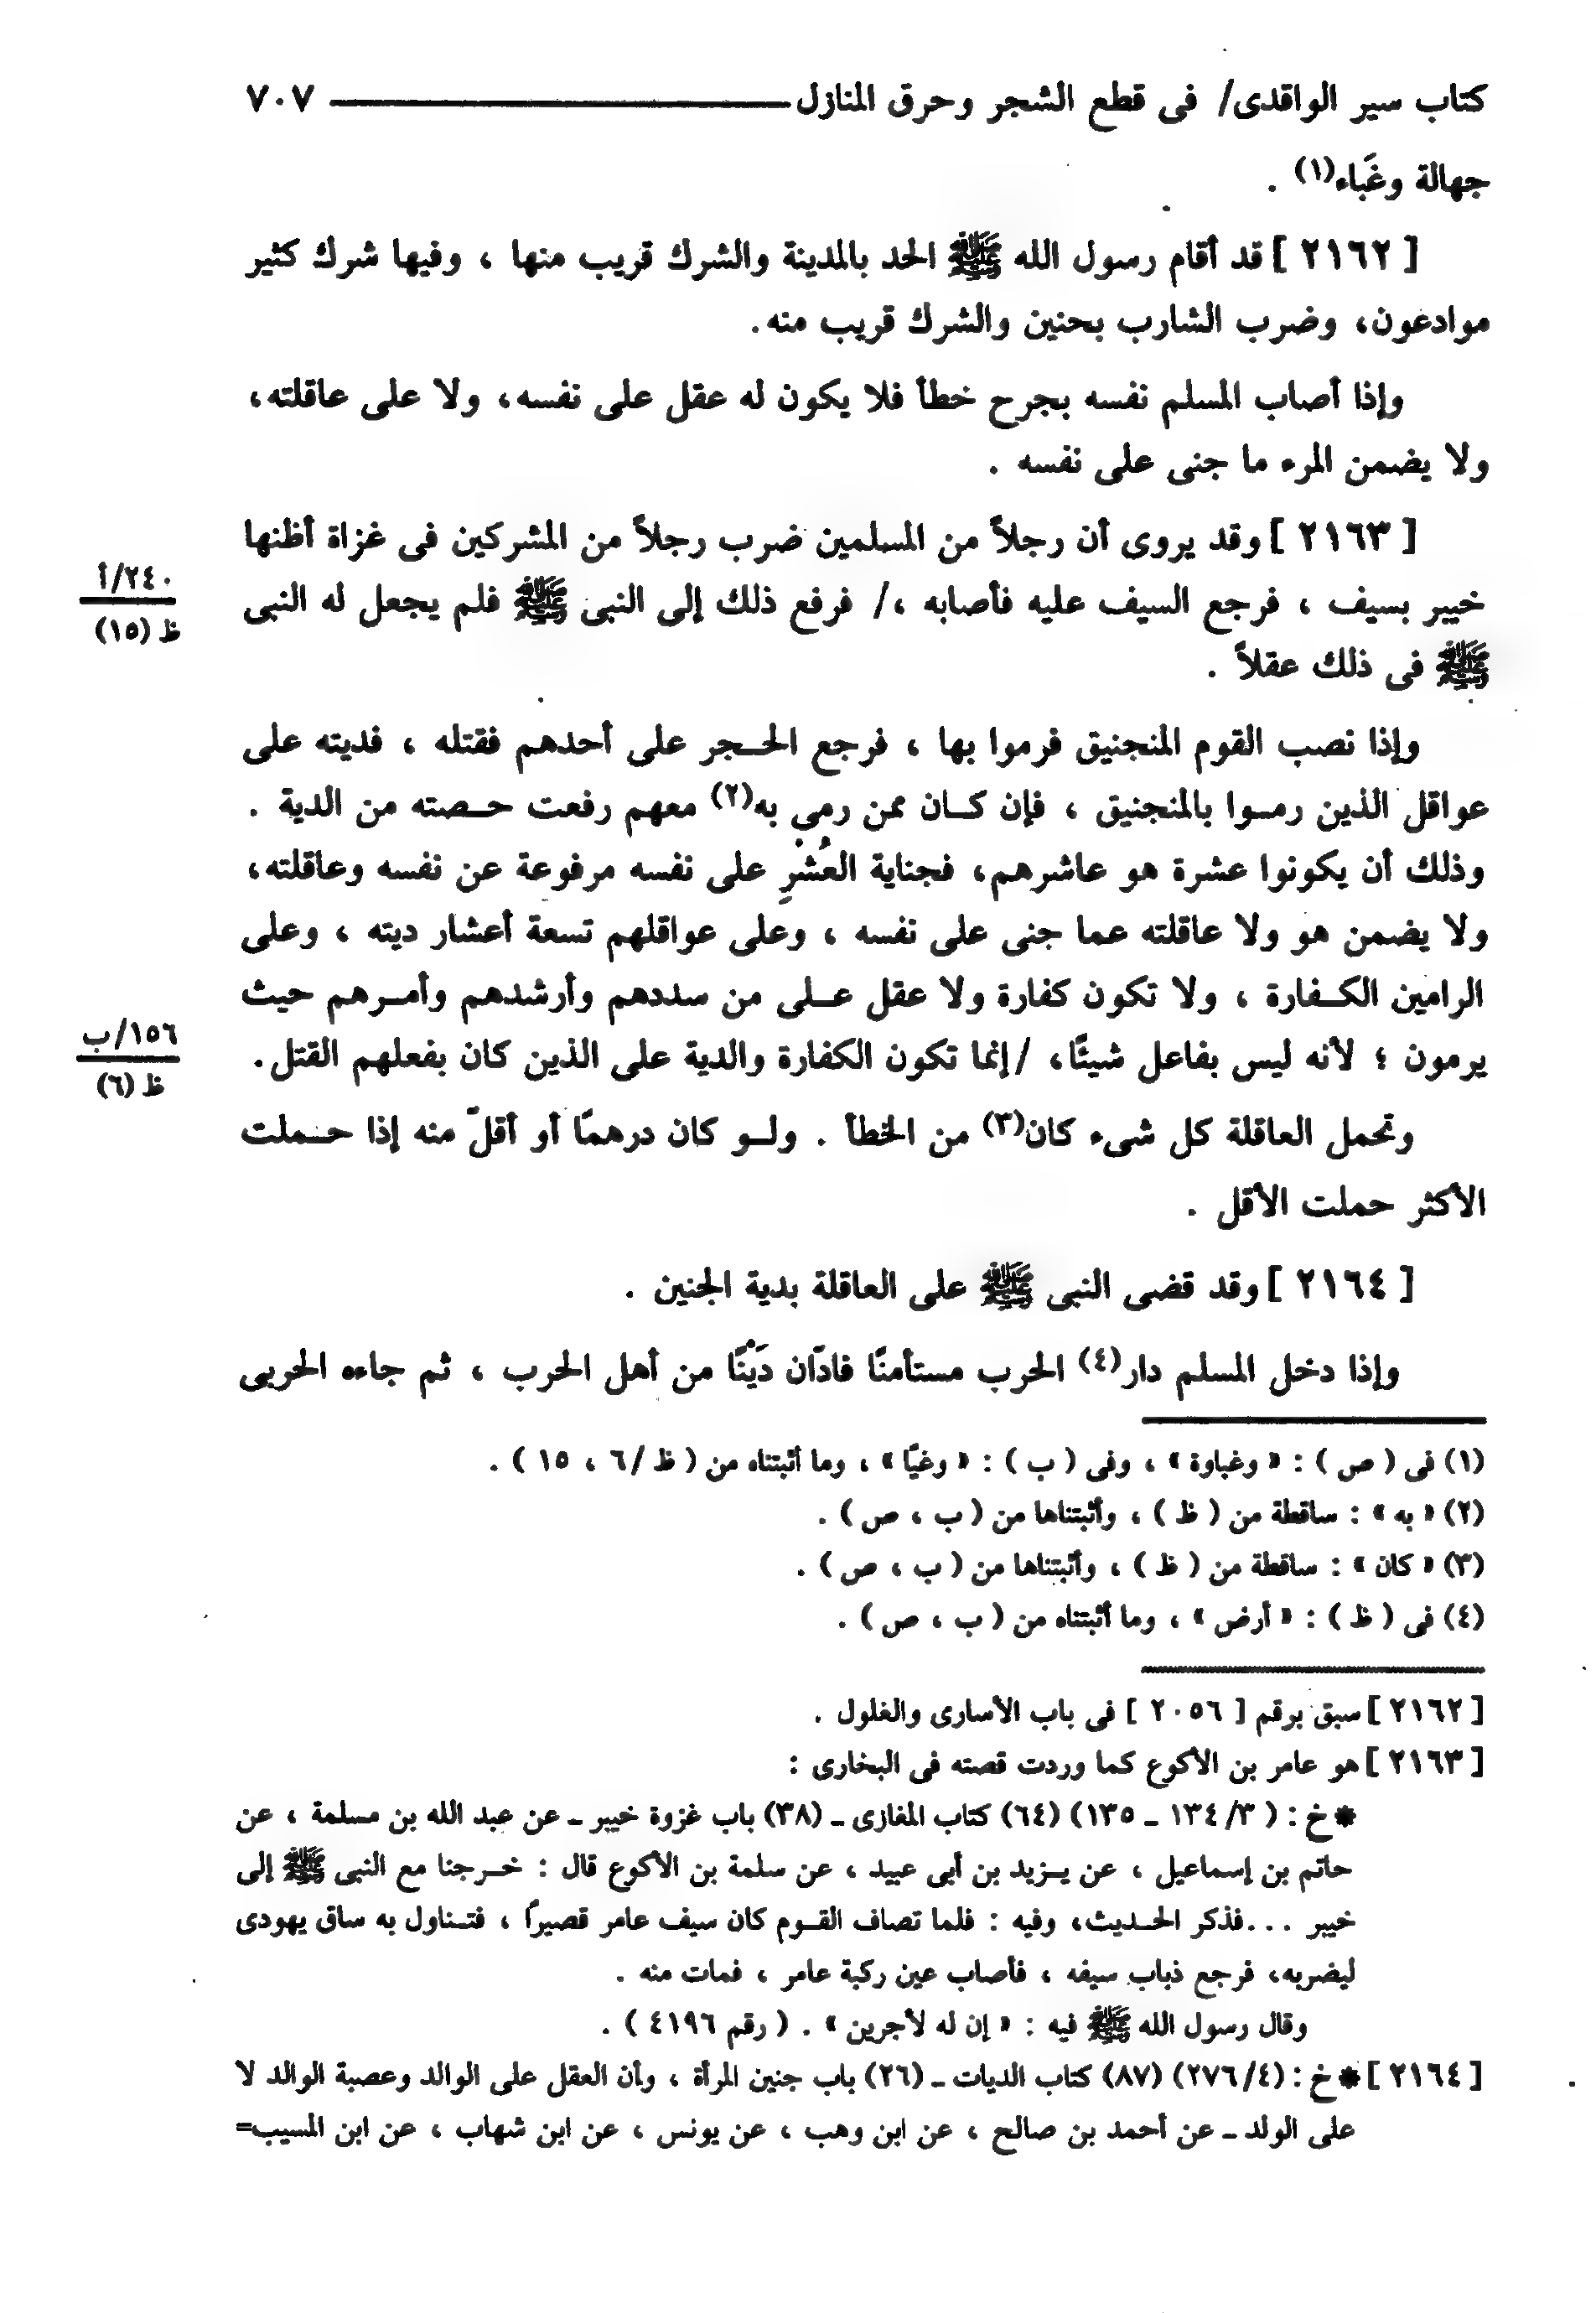 كتاب سير الواقدى/ فى قطع الشجر وحرق المنازل ٧٠٧
جهالة وغَباء(١) .
[ ٢١٦٢ ] قد أقام رسول الله ﷺ الحد بالمدينة والشرك قريب منها ، وفيها شرك كثير
موادعون، وضرب الشارب بحنين والشرك قريب منه.
وإذا أصاب المسلم نفسه بجرح خطأ فلا يكون له عقل على نفسه، ولا على عاقلته،
ولا يضمن المرء ما جنى على نفسه .
[ ٢١٦٣ ] وقد يروى أن رجلاً من المسلمين ضرب رجلاً من المشركين فى غزاة أظنها
خيبر بسيف ، فرجع السيف عليه فأصابه ،/ فرفع ذلك إلى النبى ﷺ فلم يجعل له النبى
ﷺ فى ذلك عقلاً .
٢٤٠/أ
ظ (١٥)
وإذا نصب القوم المنجنيق فرموا بها ، فرجع الحـجر على أحدهم فقتله ، فديته على
عواقل الذين رمـوا بالمنجنيق ، فإن كـان ممن رمى به(٢) معهم رفعت حـصته من الدية .
وذلك أن يكونوا عشرة هو عاشرهم، فجناية العُشْرِ على نفسه مرفوعة عن نفسه وعاقلته،
ولا يضمن هو ولا عاقلته عما جنى على نفسه ، وعلى عواقلهم تسعة أعشار ديته ، وعلى
الرامين الكـفارة ، ولا تكون كفارة ولا عقل عـلى من سددهم وأرشدهم وأمـرهم حيث
يرمون ؛ لأنه ليس بفاعل شيئًا، /إنما تكون الكفارة والدية على الذين كان بفعلهم القتل.
١٥٦/ب
ظ (٦)
وتحمل العاقلة كل شىء كان(٣) من الخطأ . ولـو كان درهمًا أو أقلّ منه إذا حـملت
الأكثر حملت الأقل .
[ ٢١٦٤ ] وقد قضى النبى ﷺ على العاقلة بدية الجنين .
وإذا دخل المسلم دار(٤) الحرب مستأمنًا فادّان دَيْنًا من أهل الحرب ، ثم جاءه الحربى
(١) فى ( ص ) : « وغباوة » ، وفى ( ب ) : « وغيًا » ، وما أثبتناه من ( ظ /٦ ، ١٥ ) .
(٢) « به » : ساقطة من ( ظ ) ، وأثبتناها من ( ب ، ص ) .
(٣) « كان » : ساقطة من ( ظ ) ، وأثبتناها من ( ب ، ص ) .
(٤) فى ( ظ ) : « أرض » ، وما أثبتناه من ( ب ، ص ) .
[ ٢١٦٢ ] سبق برقم [ ٢٠٥٦ ] فى باب الأسارى والغلول .
[ ٢١٦٣ ] هو عامر بن الأكوع كما وردت قصته فى البخارى :
* خ : ( ٣/ ١٣٤ ـ ١٣٥) (٦٤) كتاب المغازى ـ (٣٨) باب غزوة خيبر ـ عن عبد الله بن مسلمة ، عن
حاتم بن إسماعيل ، عن يـزيد بن أبى عبيد ، عن سلمة بن الأكوع قال : خـرجنا مع النبى ﷺ إلى
خيبر ...فذكر الحـديث، وفيه : فلما تصاف القـوم كان سيف عامر قصيرًا ، فتـناول به ساق يهودى
ليضربه، فرجع ذباب سيفه ، فأصاب عين ركبة عامر ، فمات منه .
وقال رسول الله ﷺ فيه : « إن له لأجرين » . ( رقم ٤١٩٦ ) .
[ ٢١٦٤ ] * خ : (٤/ ٢٧٦) (٨٧) كتاب الديات ـ (٢٦) باب جنين المرأة ، وأن العقل على الوالد وعصبة الوالد لا
على الولد ـ عن أحمد بن صالح ، عن ابن وهب ، عن يونس ، عن ابن شهاب ، عن ابن المسيب=